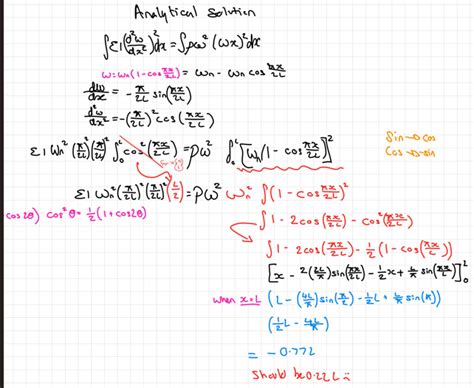 Analytical Solution
∫EI(d²w/dx²)²dx = ∫ρω²(wx)²dx
w=wn(1-cos πx/2L) = wn - wn cos πx/2L
dw/dx = - π/2L sin(πx/2L)
d²w/dx² = -(π/2L)² cos(πx/2L)
EI Wn²(π/2L)²(π/2L)² ∫₀ᴸ cos²(πx/2L) = ρω² ∫₀ᴸ [Wn(1 - cos πx/2L)]²
Sin → cos
Cos → -sin
EI wn²(π/2L)²(π/2L)²(L/2) = ρω² wn² ∫(1 - cos πx/2L)²
cos2θ) cos²θ = ½(1+cos2θ)
∫1 - 2cos(πx/2L) - cos²(πx/2L)
∫1 - 2cos(πx/2L) - ½(1 - cos(πx/L))
[x - 2(2L/π)sin(πx/2L) - ½x + ½ L/π sin(πx/L)]₀ᴸ
when x=L (L - (4L/π)sin(π/2) - ½L + L/π sin(π))
(½L - 4L/π)
= -0.77L
Should be 0.22L :(